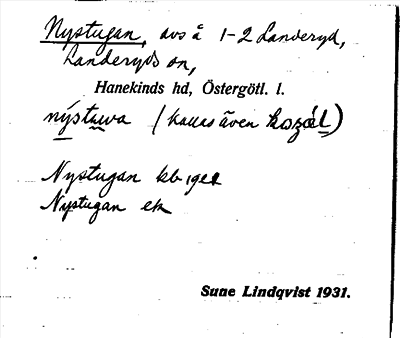 Nystugan, avs å 1-2 Landeryd,
Landeryds sn,
Hanekinds hd, Östergötl. l.
nýstuwa (kallas även )
Nystugan kb
Nystugan ek
Sune Lindqvist 1931.